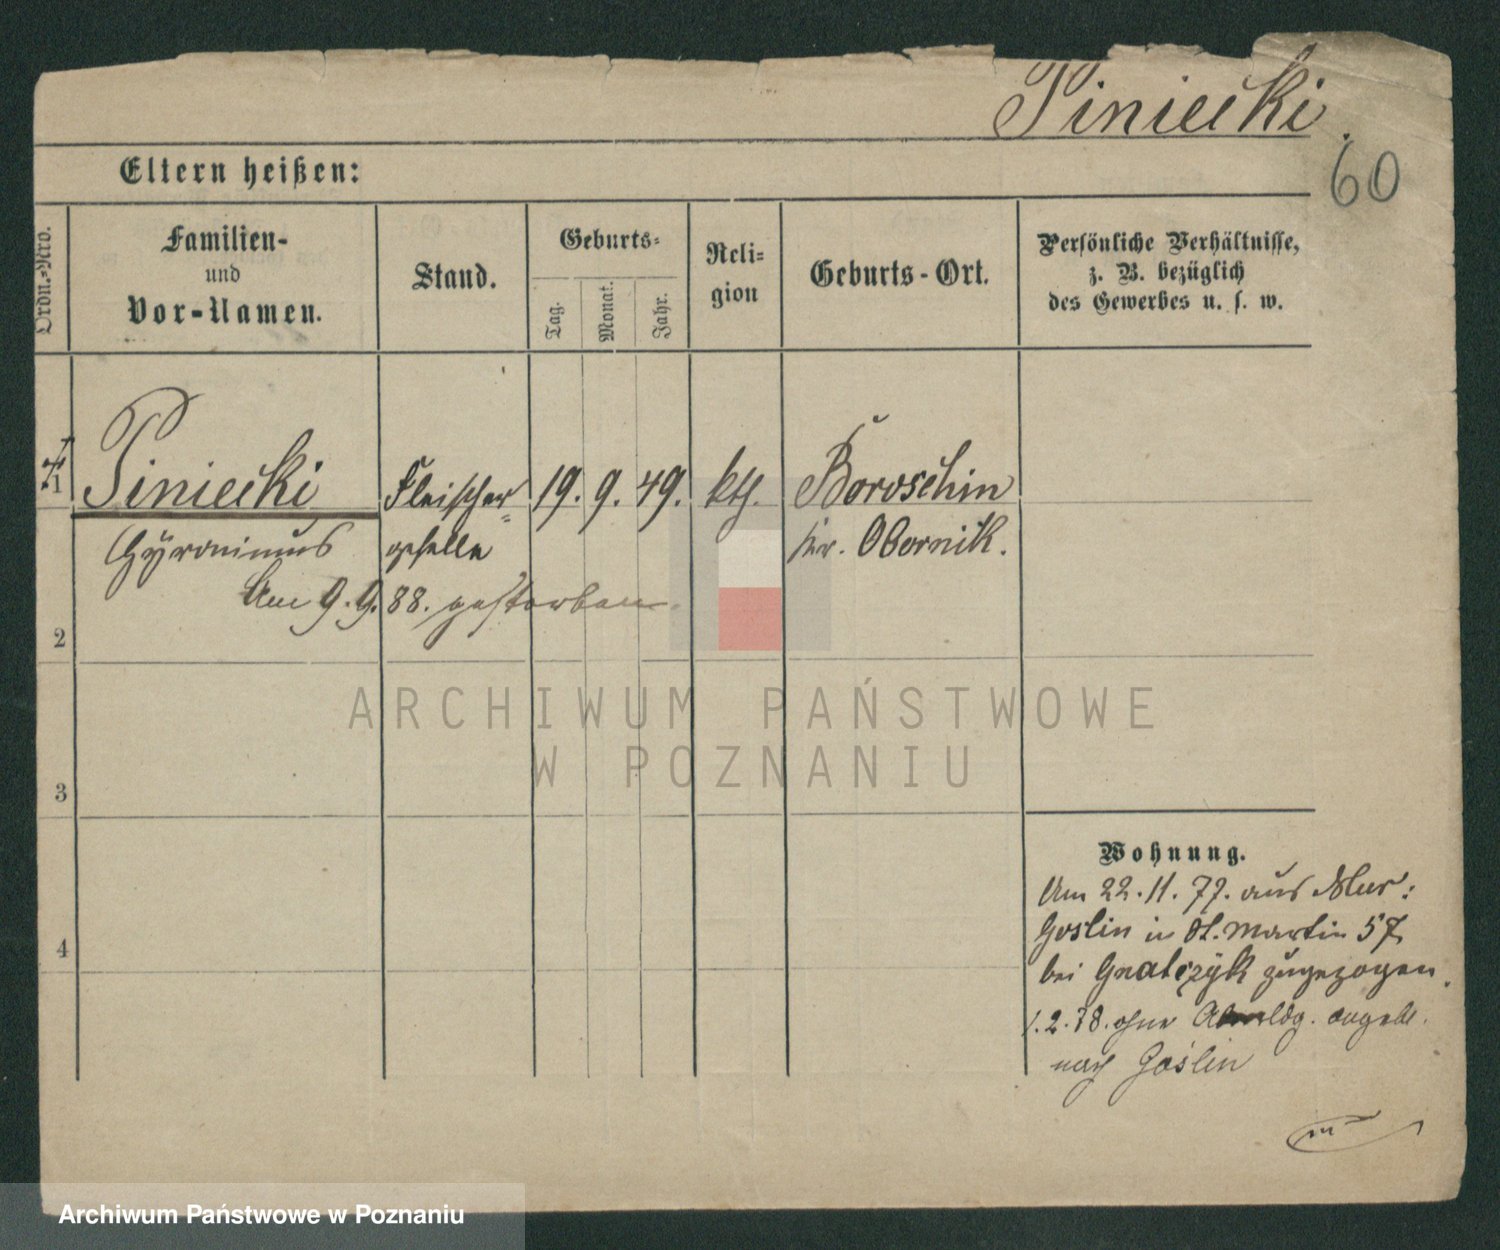 Piniecki.
60
Eltern heißen:
Ordn.-Nro.
Familien-
und
Vor-Namen.
Stand.
Geburts-
Tag.
Monat.
Jahr.
Reli-
gion
Geburts-Ort.
Persönliche Verhältnisse,
z. B. bezüglich
des Gewerbes u. s. w.
1
Piniecki Fleischer- 19. 9. 49. kth. Boroschin
Hyronimus geselle Kr. Obornik.
Am 9. 9. 88. gestorben.
2
3
4
Wohnung.
Am 22. 11. 77. aus Mur:
Goslin in St. Martin 57
bei Gnatczyk zugezogen.
1. 2. 78. ohne Abmeldg. angebl.
nach Goślin
ARCHIWUM PAŃSTWOWE
W POZNANIU
Archiwum Państwowe w Poznaniu